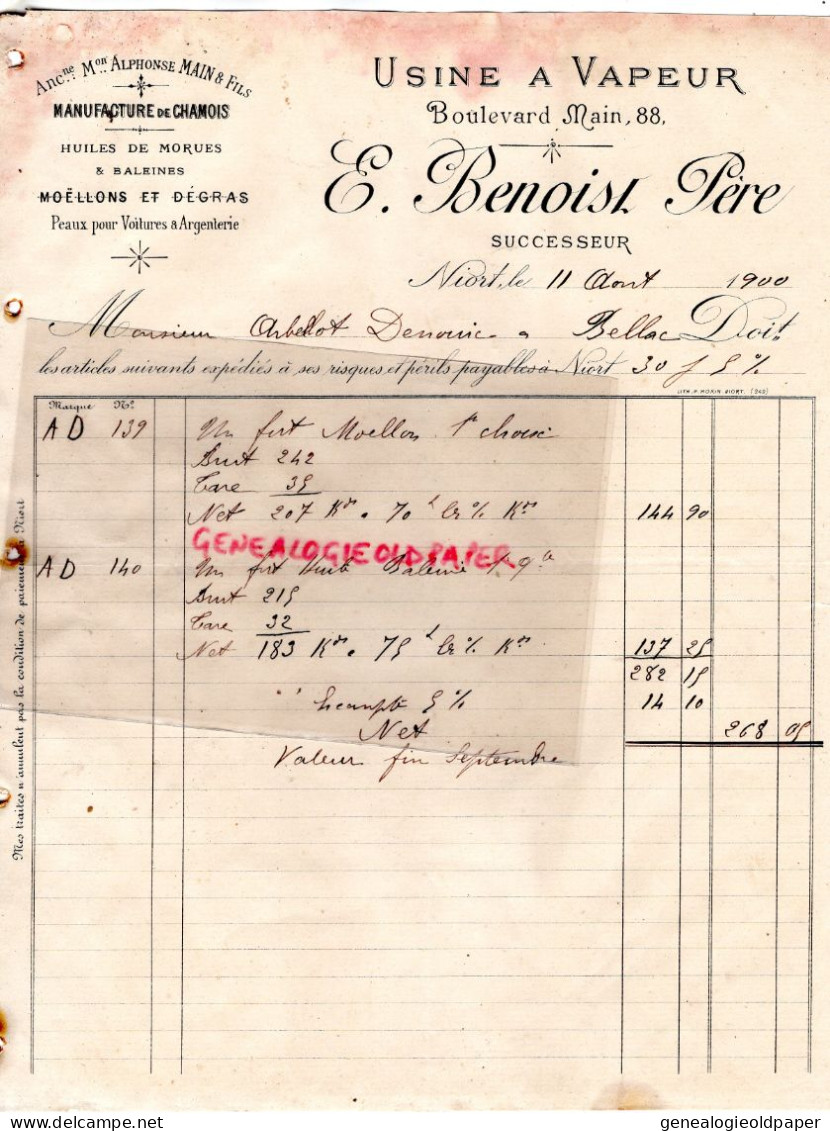 Ancne. Mon. ALPHONSE MAIN & FILS
MANUFACTURE DE CHAMOIS
HUILES DE MORUES
& BALEINES
MOËLLONS ET DÉGRAS
Peaux pour Voitures & Argenterie
USINE A VAPEUR
Boulevard Main, 88,
E. Benoist Père
SUCCESSEUR
Niort, le 11 Aout 1900
Monsieur Arbellot Denouic a Bellac Doit
les articles suivants expédiés à ses risques et périls payables à Niort 30 j 5 %
LITH. P. MORIN NIORT.
Marque No.
AD 139 Un fort Moellon 1r choix
Brut 242
Tare 35
Net 207 Kos a 70 f les % Kos 144 90
GENEALOGIEOLDPAPER
AD 140 Un fort Huile Baleine 1 qte
Brut 215
Tare 32
Net 183 Kos a 75 f les % Kos 137 25
282 15
Escompte 5 % 14 10
Net 268 05
Valeur fin Septembre
Mes traites n'annulent pas la condition de paiement à Niort
genealogieoldpaper